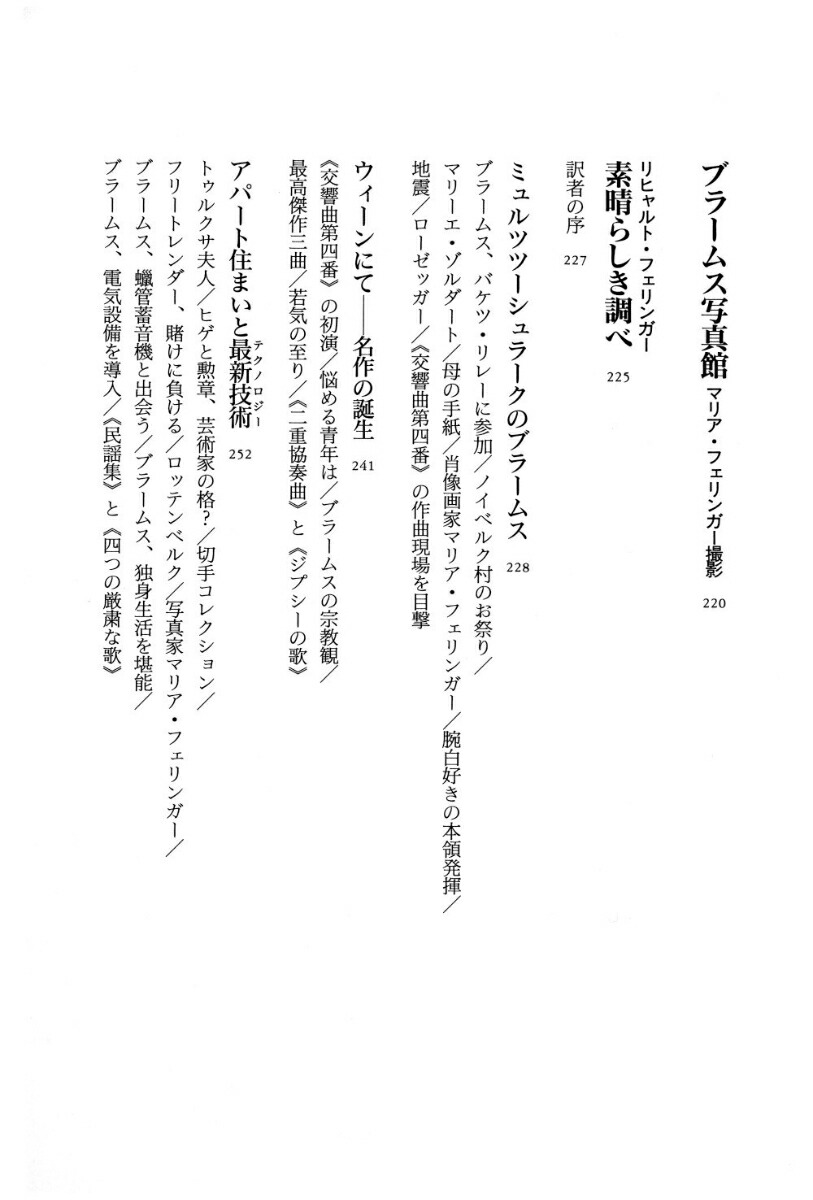 ブラームス写真館 マリア・フェリンガー撮影 220
リヒャルト・フェリンガー
素晴らしき調べ 225
訳者の序 227
ミュルツツーシュラークのブラームス 228
ブラームス、バケツ・リレーに参加／ノイベルク村のお祭り／
マリーエ・ゾルダート／母の手紙／肖像画家マリア・フェリンガー／腕白好きの本領発揮／
地震／ローゼッガー／《交響曲第四番》の作曲現場を目撃
ウィーンにて──名作の誕生 241
《交響曲第四番》の初演／悩める青年は／ブラームスの宗教観／
最高傑作三曲／若気の至り／《二重協奏曲》と《ジプシーの歌》
テクノロジー
アパート住まいと最新技術 252
トゥルクサ夫人／ヒゲと勲章、芸術家の格？／切手コレクション／
フリートレンダー、賭けに負ける／ロッテンベルク／写真家マリア・フェリンガー／
ブラームス、蠟管蓄音機と出会う／ブラームス、独身生活を堪能／
ブラームス、電気設備を導入／《民謡集》と《四つの厳粛な歌》